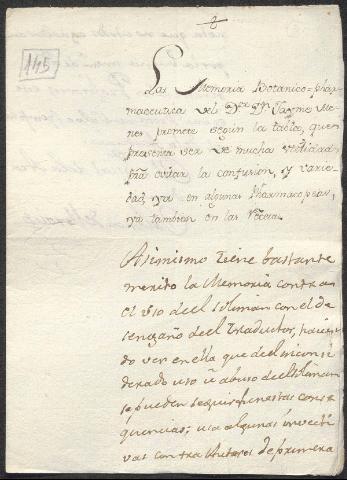 145
Las Memoria Botanico-phar
maceutica del Dr. Dn. Jayme Me
nos promete segun la tabla, que
presenta ser de mucha utilidad
pra evitar la confusion, y varie
dad, ya en algunas Pharmacopeas,
ya tambien en las
Asimismo tiene bastante
merito la Memoria contra
el uso del soliman con el de
sengaño del traductor, hacien
do ver en ella que del inconsi
derado uso u abuso del soliman
se pueden seguir funestas conse
quencias; usa algunas invecti
vas contra Autores de primera